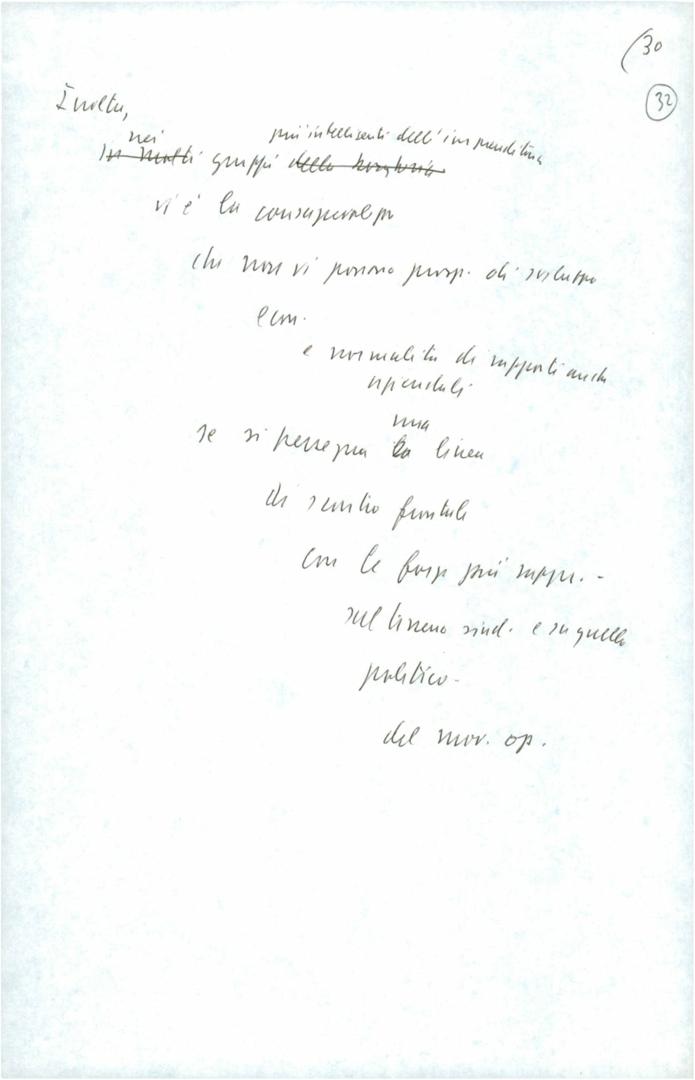 (30
32
Inoltre,
nei più intelligenti dell'imprenditoria
In molti gruppi della borghesia
vi è la consapevolezza
che non vi possono prosp. di sviluppo
econ.
e normalità di rapporti anche
aziendali
una
se si persegua la linea
di scontro frontale
con le forze più rappr. -
sul terreno sind. e su quello
politico -
del mov. op.